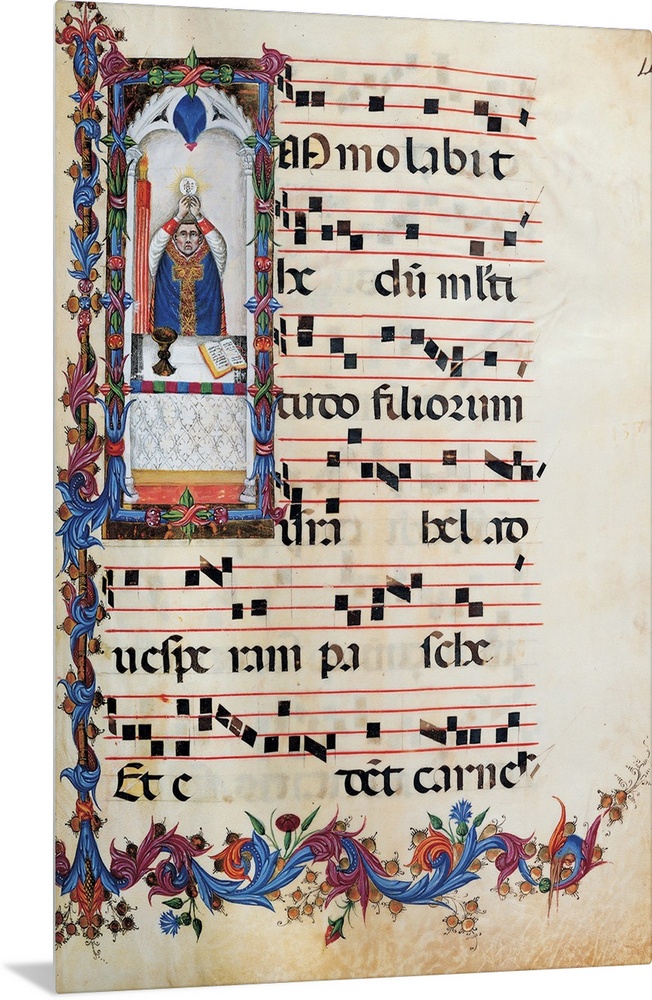 IMmolabit
he dũ ml̃ti
tudo filiorum
isra hel ad
uespe ram pa sche
Et e dẽt carnes